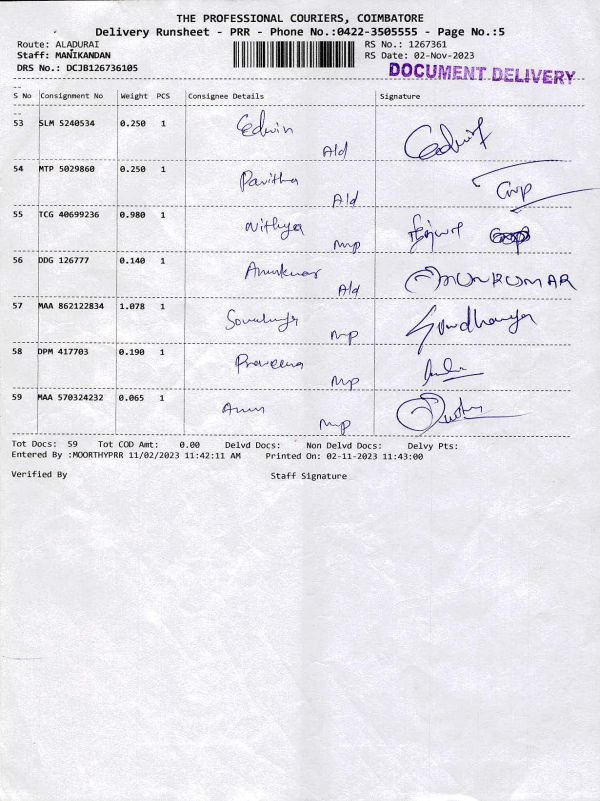 THE PROFESSIONAL COURIERS, COIMBATORE
Delivery Runsheet - PRR - Phone No.:0422-3505555 - Page No.:5
Route: ALADURAI RS No.: 1267361
Staff: MANIKANDAN RS Date: 02-Nov-2023
DRS No.: DCJB126736105 DOCUMENT DELIVERY
S No Consignment No Weight PCS Consignee Details Signature
53 SLM 5240534 0.250 1 Edwin Ald Edwin
54 MTP 5029860 0.250 1 Pavitha Ald
55 TCG 40699236 0.980 1 Nithya mp
56 DDG 126777 0.140 1 Arunkumar Ald ARUNKUMAR
57 MAA 862122834 1.078 1 mp Soundhariya
58 DPM 417703 0.190 1 Praveena mp
59 MAA 570324232 0.065 1 Arun mp
Tot Docs: 59 Tot COD Amt: 0.00 Delvd Docs: Non Delvd Docs: Delvy Pts:
Entered By :MOORTHYPRR 11/02/2023 11:42:11 AM Printed On: 02-11-2023 11:43:00
Verified By Staff Signature